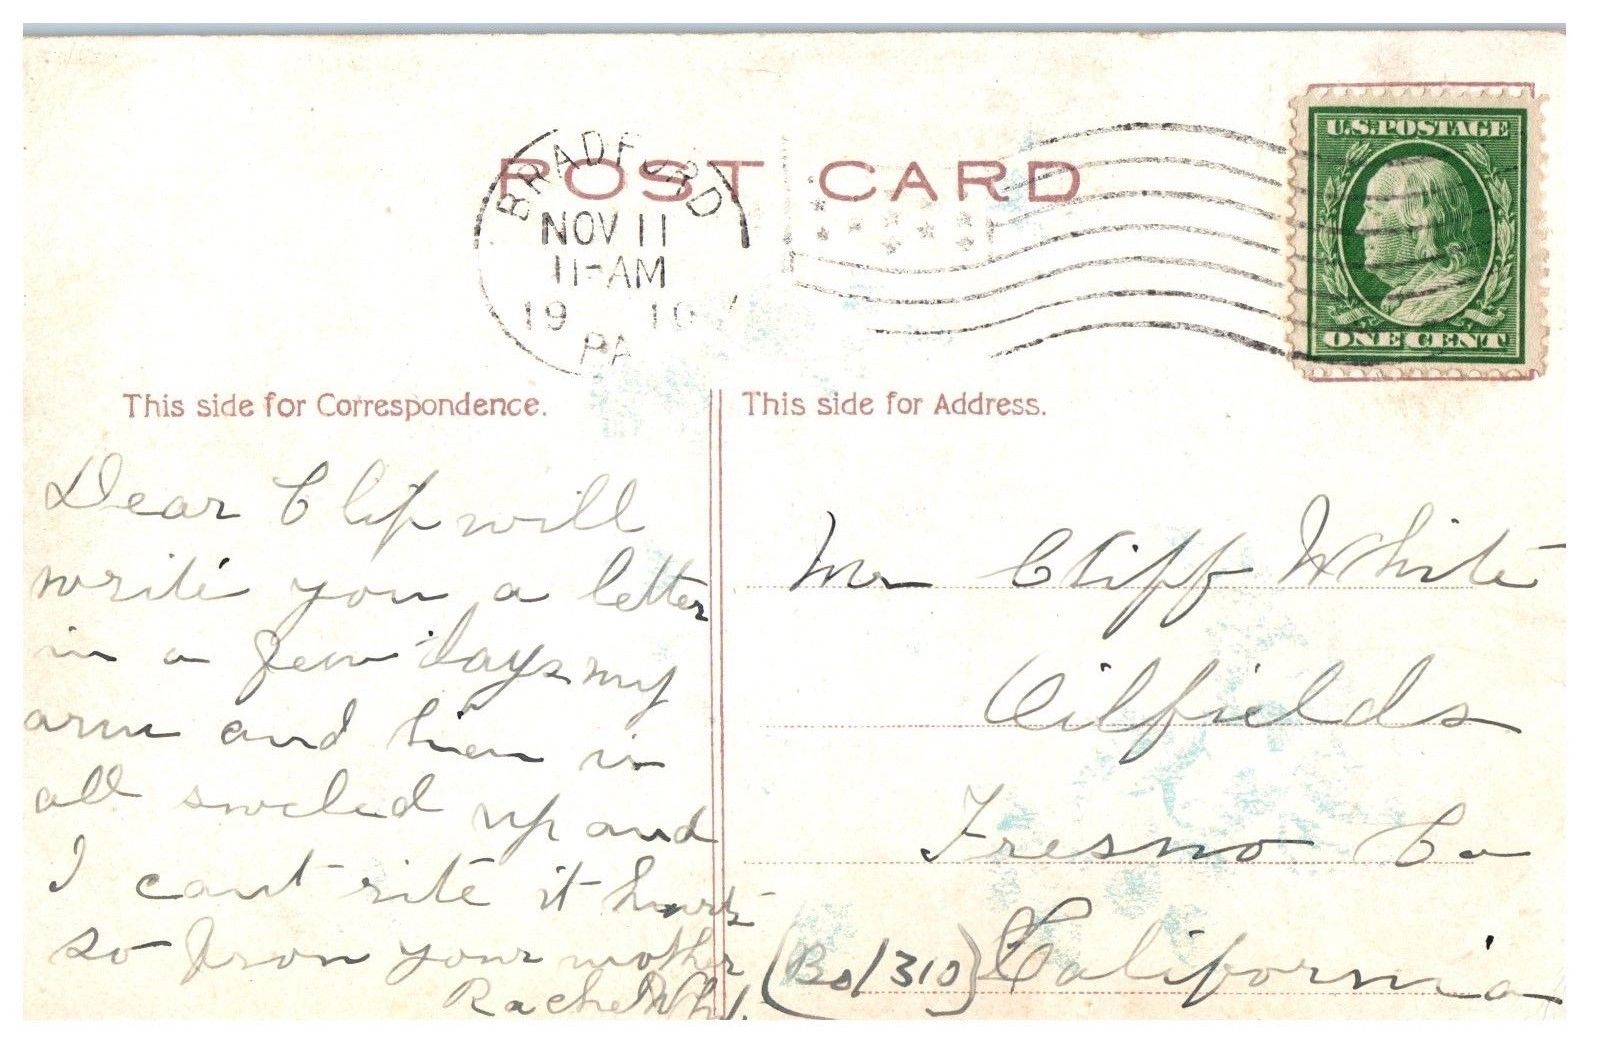 BRADFORD
NOV 11
11-AM
19 10
PA
POST CARD
U.S. POSTAGE
ONE CENT
This side for Correspondence.
This side for Address.
Dear Clif will
write you a letter
in a few days my
arm and hien is
all sweled up and
I cant rite it hurts
so from your mother
Rachel Wh
Mr Cliff White
Oilfields
Fresno Co
(Box 310) California